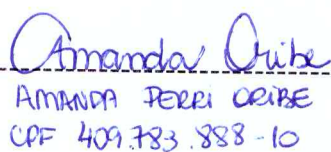 Amanda Oribe
AMANDA PERRI ORIBE
CPF 409.783.888-10